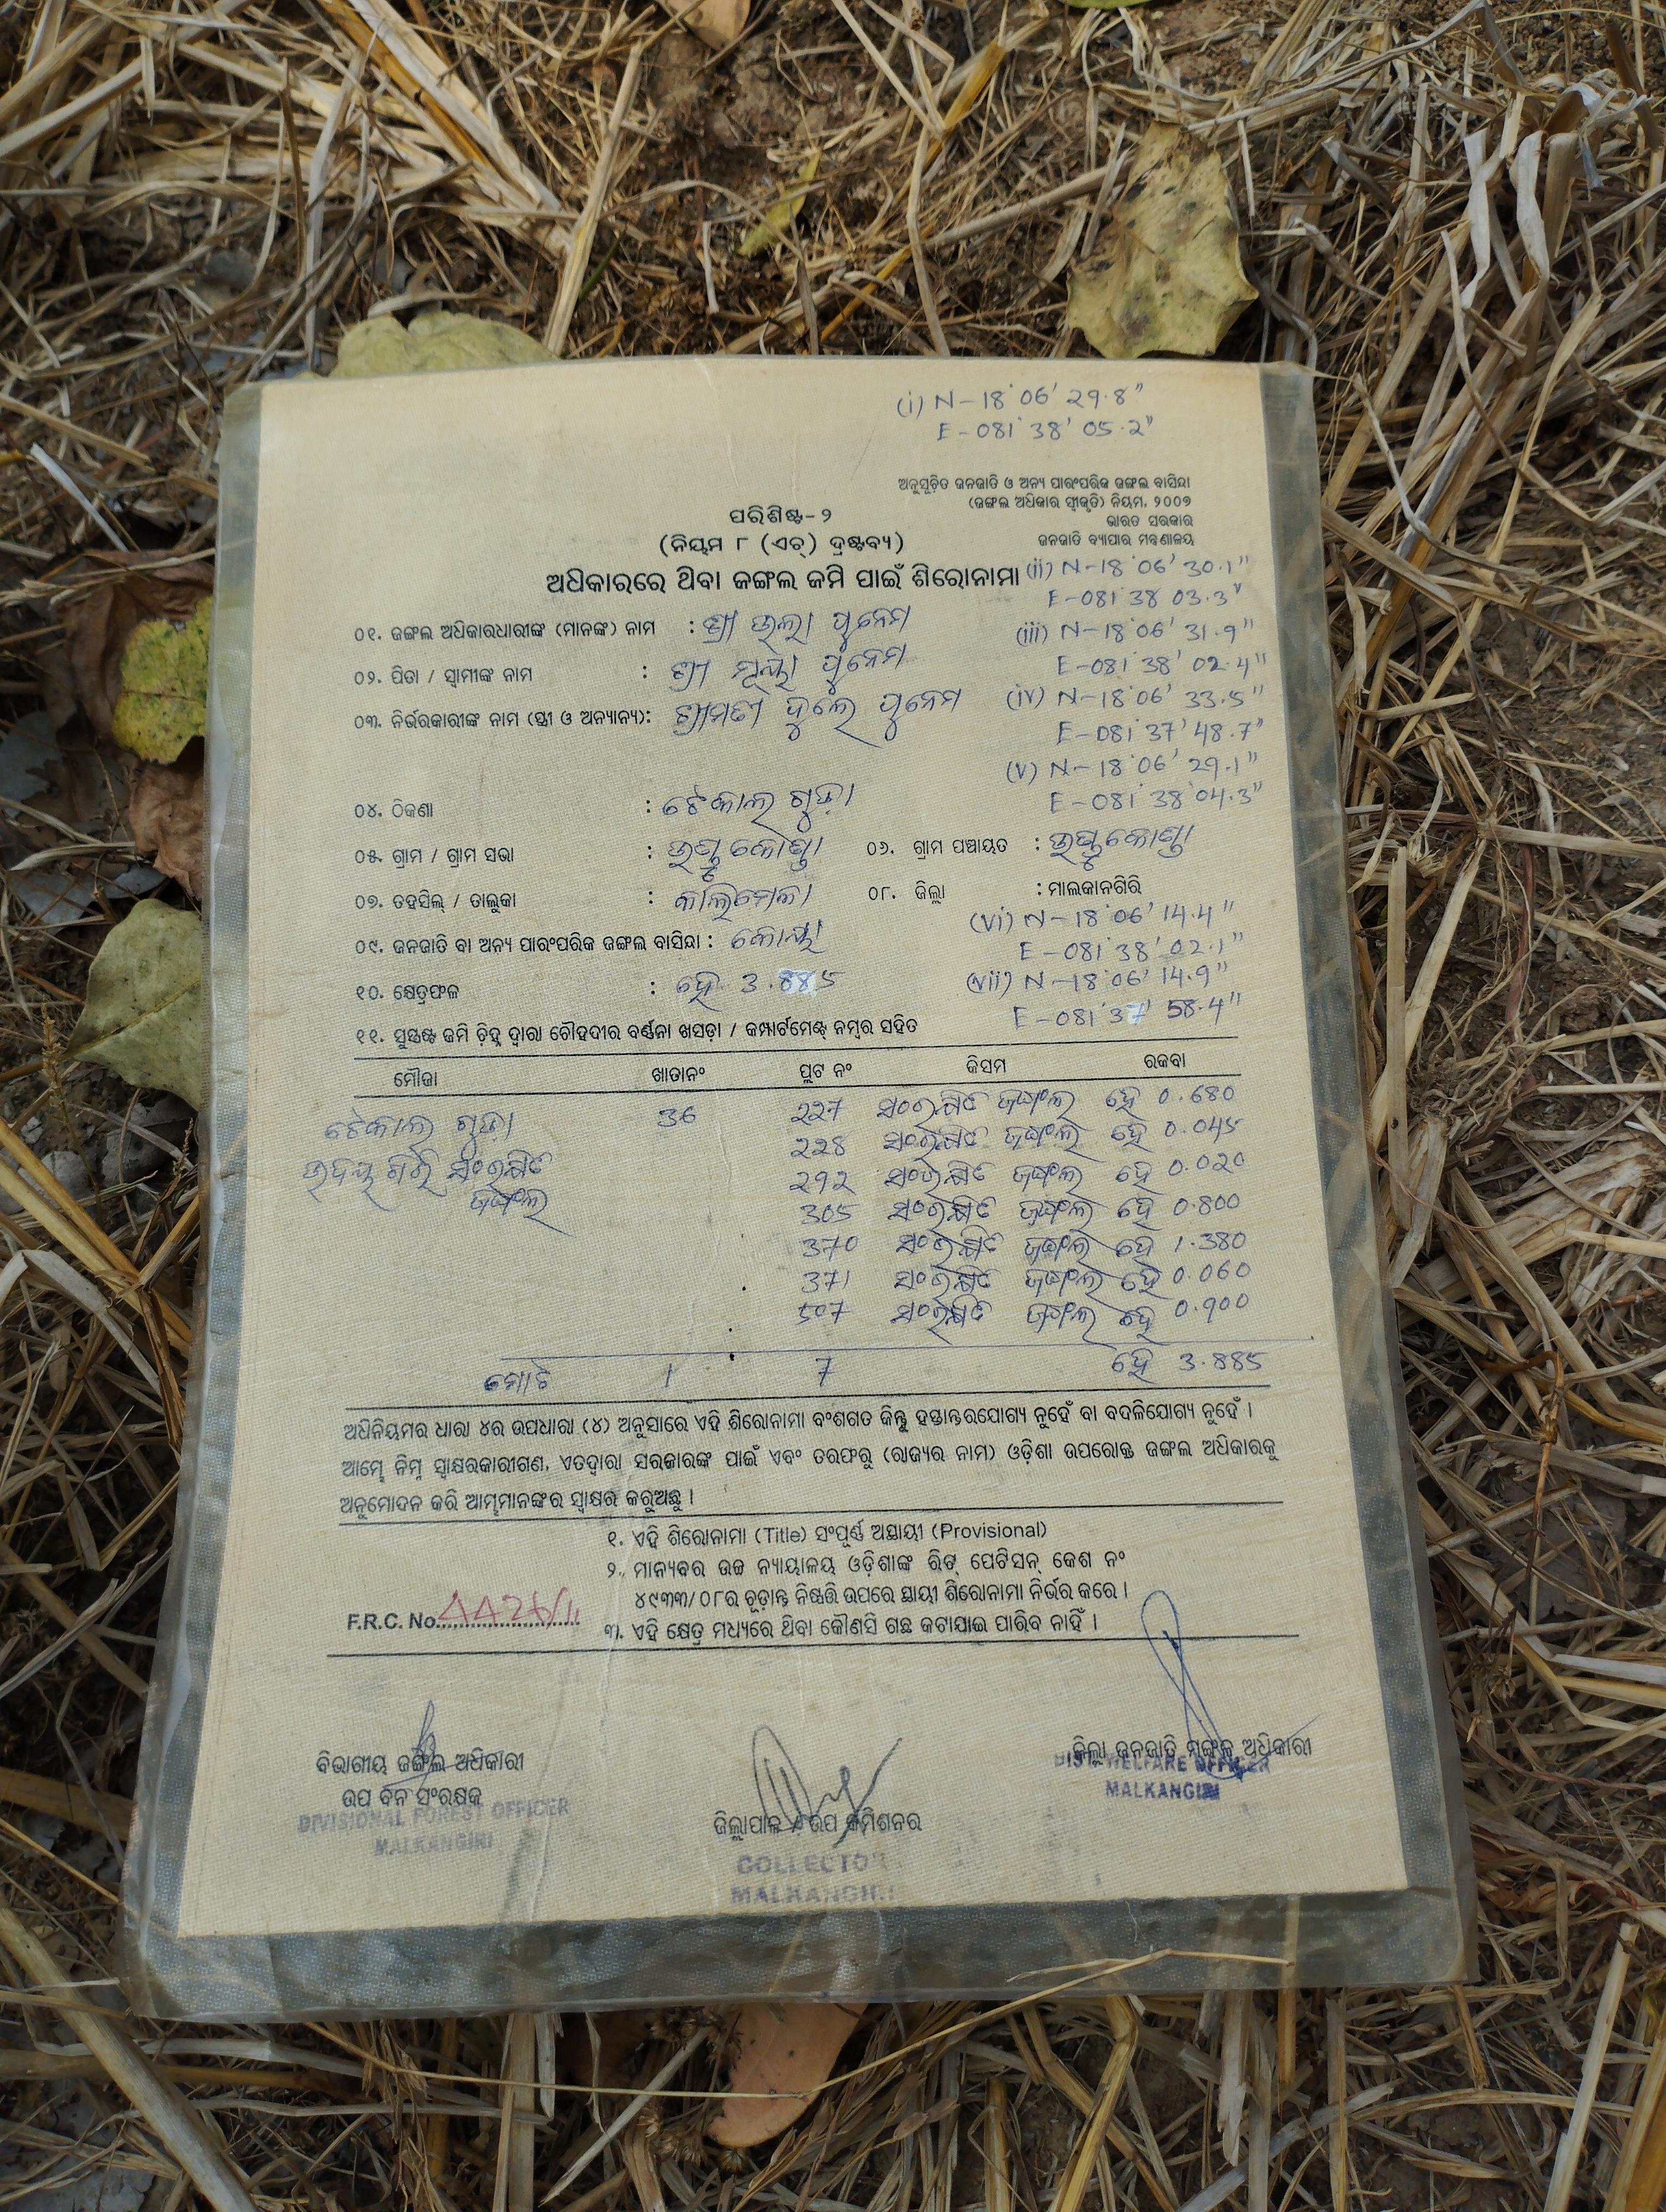 (i) N-18°06' 29.8"
E-081°38' 05.2"
ଅନୁସୂଚିତ ଜନଜାତି ଓ ଅନ୍ୟ ପାରଂପରିକ ଜଙ୍ଗଲ ବାସିନ୍ଦା
(ଜଙ୍ଗଲ ଅଧିକାର ସ୍ୱୀକୃତି) ନିୟମ, ୨୦୦୭
ଭାରତ ସରକାର
ଜନଜାତି ବ୍ୟାପାର ମନ୍ତ୍ରଣାଳୟ
ପରିଶିଷ୍ଟ-୨
(ନିୟମ ୮ (ଏଚ୍) ଦ୍ରଷ୍ଟବ୍ୟ)
ଅଧିକାରରେ ଥିବା ଜଙ୍ଗଲ ଜମି ପାଇଁ ଶିରୋନାମା
(ii) N-18°06' 30.1"
E-081°38 03.3"
୦୧. ଜଙ୍ଗଲ ଅଧିକାରଧାରୀଙ୍କ (ମାନଙ୍କ) ନାମ : ଶ୍ରୀ ଉଲା ପୁନେମ
(iii) N-18°06' 31.9"
E-081°38' 02.4"
୦୨. ପିତା / ସ୍ୱାମୀଙ୍କ ନାମ : ଶ୍ରୀ ପୁନେମ
୦୩. ନିର୍ଭରକାରୀଙ୍କ ନାମ (ସ୍ତ୍ରୀ ଓ ଅନ୍ୟାନ୍ୟ): ଶ୍ରୀମତୀ ଦୁଲେ ପୁନେମ
(iv) N-18°06' 33.5"
E-081°37' 48.7"
(v) N-18°06' 29.1"
E-081°38'04.3"
୦୪. ଠିକଣା : ଟେକାଲ ଗୁଡ଼ା
୦୫. ଗ୍ରାମ / ଗ୍ରାମ ସଭା :
୦୬. ଗ୍ରାମ ପଞ୍ଚାୟତ :
୦୭. ତହସିଲ୍ / ତାଲୁକା : କାଲିମେଳା
୦୮. ଜିଲ୍ଲା : ମାଲକାନଗିରି
(vi) N-18°06' 14.4"
E-081°38' 02.1"
୦୯. ଜନଜାତି ବା ଅନ୍ୟ ପାରଂପରିକ ଜଙ୍ଗଲ ବାସିନ୍ଦା : କୋୟା
୧୦. କ୍ଷେତ୍ରଫଳ : ହେ 3.885
(vii) N-18°06' 14.9"
E-081°37' 58.4"
୧୧. ସୁସ୍ପଷ୍ଟ ଜମି ଚିହ୍ନ ଦ୍ୱାରା ଚୌହଦୀର ବର୍ଣ୍ଣନା ଖସଡ଼ା / କମ୍ପାର୍ଟମେଣ୍ଟ ନମ୍ବର ସହିତ
ମୌଜା ଖାତାନଂ ପ୍ଲଟ ନଂ କିସମ ରକବା
ଟେକାଲ ଗୁଡ଼ା 36 227 ସଂରକ୍ଷିତ ଜଙ୍ଗଲ ହେ 0.680
228 ସଂରକ୍ଷିତ ଜଙ୍ଗଲ ହେ 0.045
ଉଦୟ ଗିରି ସଂରକ୍ଷିତ 292 ସଂରକ୍ଷିତ ଜଙ୍ଗଲ ହେ 0.020
ଜଙ୍ଗଲ 305 ସଂରକ୍ଷିତ ଜଙ୍ଗଲ ହେ 0.800
370 ସଂରକ୍ଷିତ ଜଙ୍ଗଲ ହେ 1.380
371 ସଂରକ୍ଷିତ ଜଙ୍ଗଲ ହେ 0.060
507 ସଂରକ୍ଷିତ ଜଙ୍ଗଲ ହେ 0.900
ମୋଟ 1 7 ହେ 3.885
ଅଧିନିୟମର ଧାରା ୪ର ଉପଧାରା (୪) ଅନୁସାରେ ଏହି ଶିରୋନାମା ବଂଶଗତ କିନ୍ତୁ ହସ୍ତାନ୍ତରଯୋଗ୍ୟ ନୁହେଁ ବା ବଦଳିଯୋଗ୍ୟ ନୁହେଁ ।
ଆମ୍ଭେ ନିମ୍ନ ସ୍ୱାକ୍ଷରକାରୀଗଣ, ଏତଦ୍ୱାରା ସରକାରଙ୍କ ପାଇଁ ଏବଂ ତରଫରୁ (ରାଜ୍ୟର ନାମ) ଓଡ଼ିଶା ଉପରୋକ୍ତ ଜଙ୍ଗଲ ଅଧିକାରକୁ
ଅନୁମୋଦନ କରି ଆମ୍ଭମାନଙ୍କର ସ୍ୱାକ୍ଷର କରୁଅଛୁ ।
୧. ଏହି ଶିରୋନାମା (Title) ସଂପୂର୍ଣ୍ଣ ଅସ୍ଥାୟୀ (Provisional)
୨. ମାନ୍ୟବର ଉଚ୍ଚ ନ୍ୟାୟାଳୟ ଓଡ଼ିଶାଙ୍କ ରିଟ୍ ପେଟିସନ୍ କେଶ ନଂ
୪୯୩୩/୦୮ର ଚୂଡ଼ାନ୍ତ ନିଷ୍ପତ୍ତି ଉପରେ ସ୍ଥାୟୀ ଶିରୋନାମା ନିର୍ଭର କରେ ।
F.R.C. No.
୩. ଏହି କ୍ଷେତ୍ର ମଧ୍ୟରେ ଥିବା କୌଣସି ଗଛ କଟାଯାଇ ପାରିବ ନାହିଁ ।
ବିଭାଗୀୟ ଜଙ୍ଗଲ ଅଧିକାରୀ
ଉପ ବନ ସଂରକ୍ଷକ
DIVISIONAL FOREST OFFICER
MALKANGIRI
ଜିଲ୍ଲାପାଳ / ଉପ କମିଶନର
COLLECTOR
MALKANGIRI
ଜିଲ୍ଲା ଜନଜାତି ମଙ୍ଗଳ ଅଧିକାରୀ
DIST. WELFARE OFFICER
MALKANGIRI